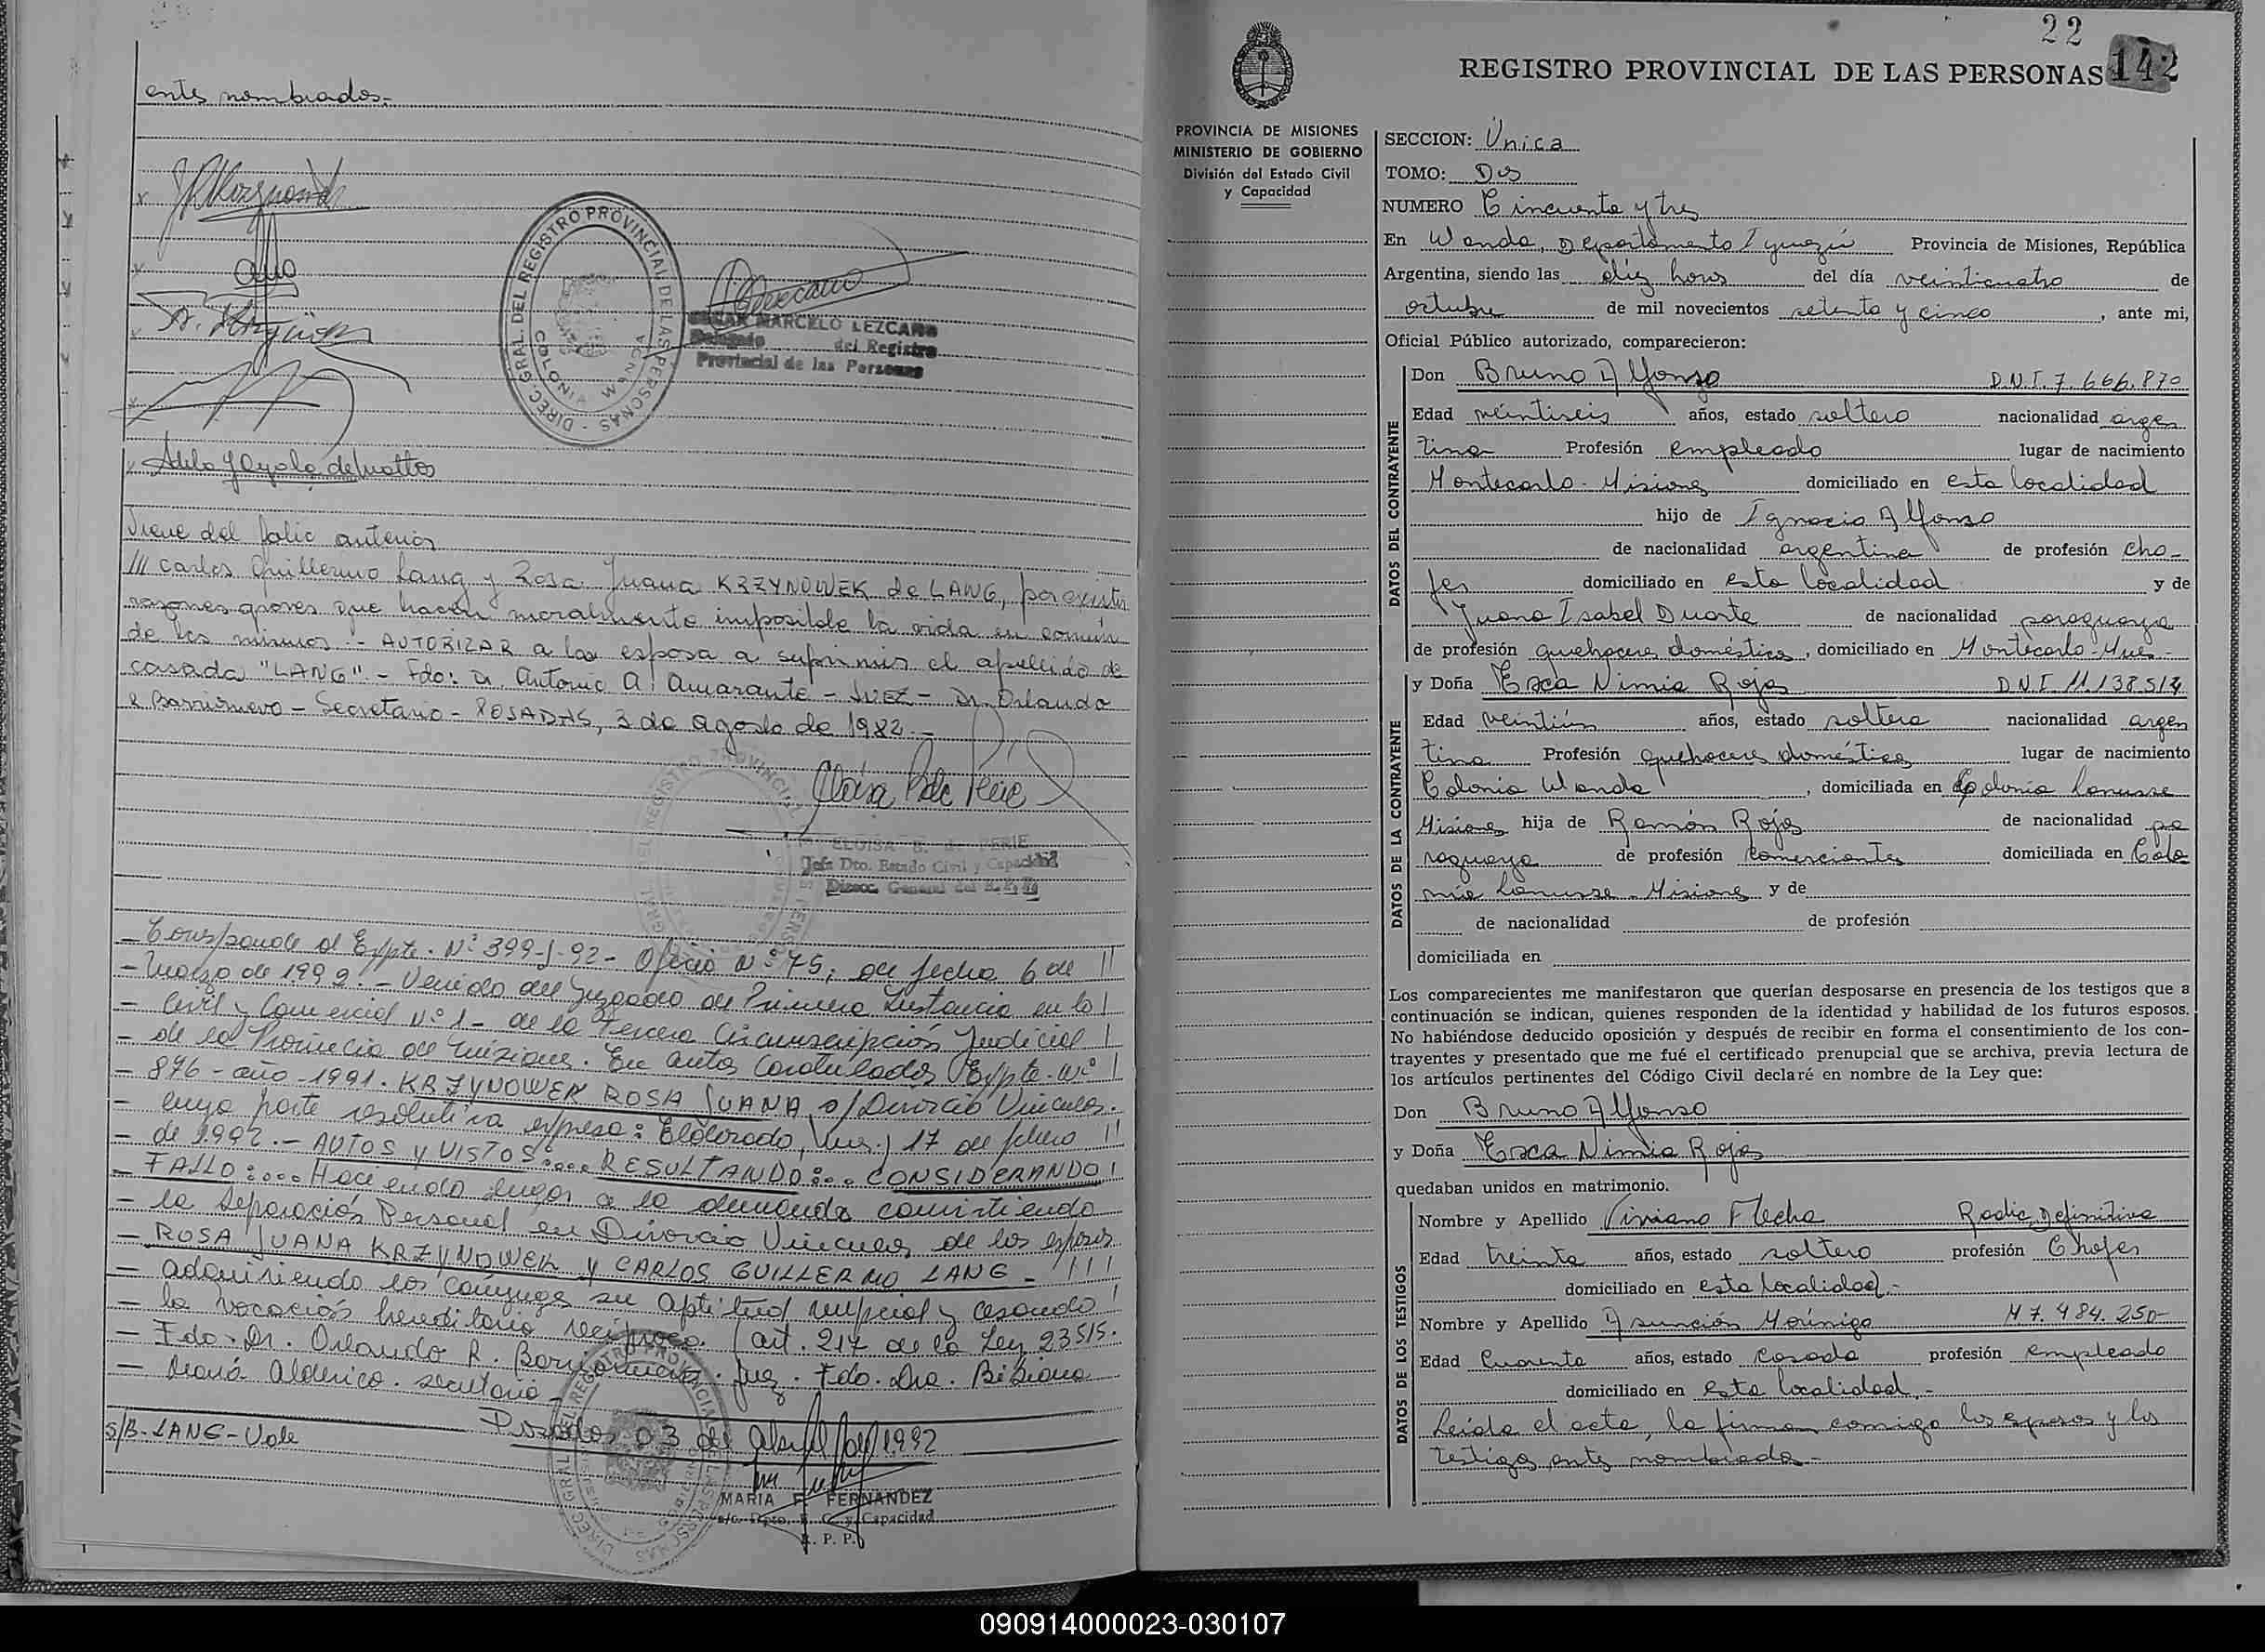 antes nombrados.-
CESAR MARCELO LEZCANO
Delegado del Registro
Provincial de las Personas
DIREC. GRAL. DEL REGISTRO PROVINCIAL DE LAS PERSONAS
COLONIA WANDA
Adela J Ayala de Mattos
Viene del folio anterior
/// Carlos Guillermo Lang y Rosa Juana KRZYNOWEK de LANG, por existir
razones graves que hacen moralmente imposible la vida en común
de los mismos.- AUTORIZAR a la esposa a suprimir el apellido de
casada "LANG".- Fdo: Dr. Antonio A. Amarante - JUEZ - Dr. Orlando
R Barrionuevo - Secretario - POSADAS, 3 de agosto de 1982.-
ELOISA B. de PERIE
Jefa Dto. Estado Civil y Capacidad
Direcc. General del R.P.P.
- Corresponde al Expte. Nº 399-J-92- Oficio Nº 75, de fecha 6 de //
- Marzo de 1992.- Venido del Juzgado de Primera Instancia en lo /
- Civil y Comercial Nº 1- de la Tercera Circunscripción Judicial /
- de la Provincia de Misiones. En autos Caratulados Expte. Nº /
- 876 - año - 1991. KRZYNOWEK ROSA JUANA s/ Divorcio Vincular.
- cuya parte resolutiva expresa: Eldorado, (Mnes.) 17 de febrero //
- de 1992.- AUTOS y VISTOS:... RESULTANDO:... CONSIDERANDO/
- FALLO:.... Haciendo lugar a la demanda convirtiendo
- la Separación Personal en Divorcio Vincular de los esposos
- ROSA JUANA KRZYNOWEK y CARLOS GUILLERMO LANG - ///
- adquiriendo los cónyuges su aptitud nupcial y cesando /
- la vocación hereditaria recíproca. (art. 217 de la Ley 23515.
- Fdo. Dr. Orlando R. Barrionuevo. Juez. Fdo. Dra. Bibiana
- María Alderico. secretaria -
Posadas 03 de Abril de 1992
s/B- LANG- Vale
MARIA F. FERNANDEZ
a/c. Dpto. E. C. y Capacidad
R. P. P.
22
REGISTRO PROVINCIAL DE LAS PERSONAS 142
PROVINCIA DE MISIONES
MINISTERIO DE GOBIERNO
División del Estado Civil
y Capacidad
SECCION: Unica
TOMO: Dos
NUMERO Cincuenta y tres
En Wanda, Departamento Iguazú Provincia de Misiones, República
Argentina, siendo las diez horas del día veinticuatro de
octubre de mil novecientos setenta y cinco, ante mi,
Oficial Público autorizado, comparecieron:
DATOS DEL CONTRAYENTE
Don Bruno Alfonzo D.N.I. 7.666.870
Edad veintiseis años, estado soltero nacionalidad argen
tina Profesión empleado lugar de nacimiento
Montecarlo - Misiones domiciliado en esta localidad
hijo de Ignacio Alfonzo
de nacionalidad argentina de profesión cho-
fer domiciliado en esta localidad y de
Juana Isabel Duarte de nacionalidad paraguaya
de profesión quehaceres domésticos, domiciliado en Montecarlo-Mnes-
DATOS DE LA CONTRAYENTE
y Doña Esca Nimia Rojas D.N.I. 11.138.514
Edad veintiún años, estado soltera nacionalidad argen
tina Profesión quehaceres domésticos lugar de nacimiento
Colonia Wanda, domiciliada en Colonia Lanusse
Misiones hija de Ramón Rojas de nacionalidad pa
raguaya de profesión comerciantes domiciliada en Colo
nia Lanusse - Misiones y de
de nacionalidad de profesión
domiciliada en
Los comparecientes me manifestaron que querían desposarse en presencia de los testigos que a
continuación se indican, quienes responden de la identidad y habilidad de los futuros esposos.
No habiéndose deducido oposición y después de recibir en forma el consentimiento de los con-
trayentes y presentado que me fué el certificado prenupcial que se archiva, previa lectura de
los artículos pertinentes del Código Civil declaré en nombre de la Ley que:
Don Bruno Alfonso
y Doña Esca Nimia Rojas
quedaban unidos en matrimonio.
DATOS DE LOS TESTIGOS
Nombre y Apellido Viviano Flecha Radic. Definitiva
Edad treinta años, estado soltero profesión Chofer
domiciliado en esta localidad.-
Nombre y Apellido Asunción Morínigo M 7.484.250-
Edad Cuarenta años, estado casado profesión empleado
domiciliado en esta localidad.-
Leída el acta, la firman conmigo los esposos y los
testigos antes nombrados-
090914000023-030107